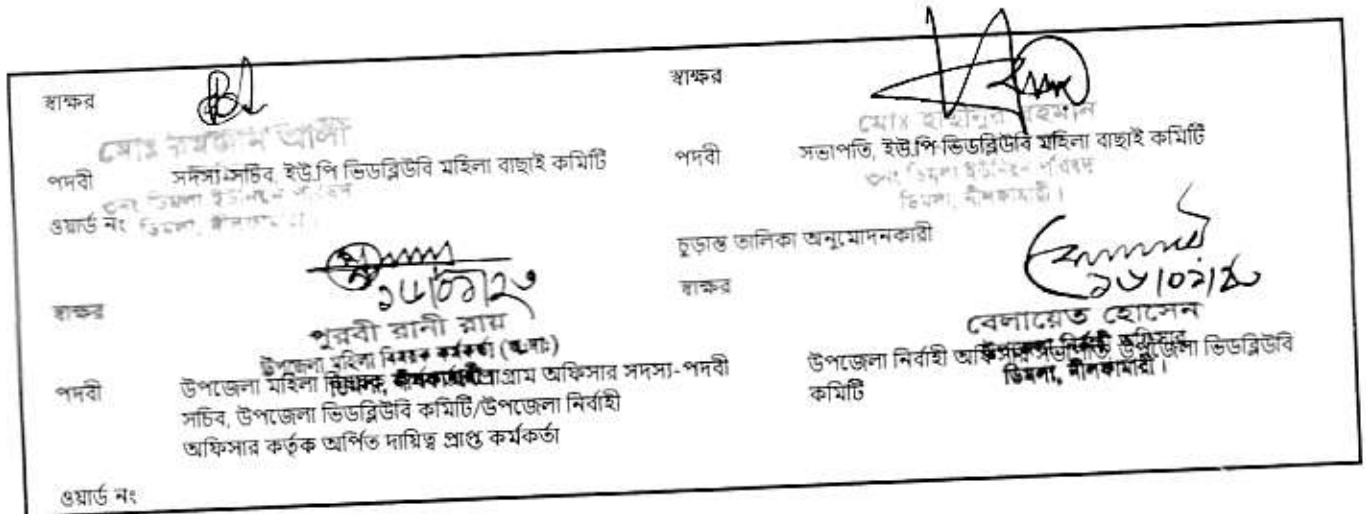 স্বাক্ষর
মোঃ আলী
পদবী সদস্য-সচিব, ইউ.পি ভিডব্লিউবি মহিলা বাছাই কমিটি
ডিমলা ইউনিয়ন পরিষদ
ওয়ার্ড নং ডিমলা, নীলফামারী।
স্বাক্ষর
মোঃ রহমান
পদবী সভাপতি, ইউ.পি ভিডব্লিউবি মহিলা বাছাই কমিটি
ডিমলা ইউনিয়ন পরিষদ
ডিমলা, নীলফামারী।
স্বাক্ষর
পুরবী রানী রায়
উপজেলা মহিলা বিষয়ক কর্মকর্তা (অঃদাঃ)
ডিমলা, নীলফামারী।
পদবী উপজেলা মহিলা প্রোগ্রাম অফিসার সদস্য-পদবী
সচিব, উপজেলা ভিডব্লিউবি কমিটি/উপজেলা নির্বাহী
অফিসার কর্তৃক অর্পিত দায়িত্ব প্রাপ্ত কর্মকর্তা
ওয়ার্ড নং
চুড়ান্ত তালিকা অনুমোদনকারী
স্বাক্ষর
বেলায়েত হোসেন
উপজেলা নির্বাহী অফিসার
ডিমলা, নীলফামারী।
উপজেলা নির্বাহী অফিসার সভাপতি, উপজেলা ভিডব্লিউবি
কমিটি